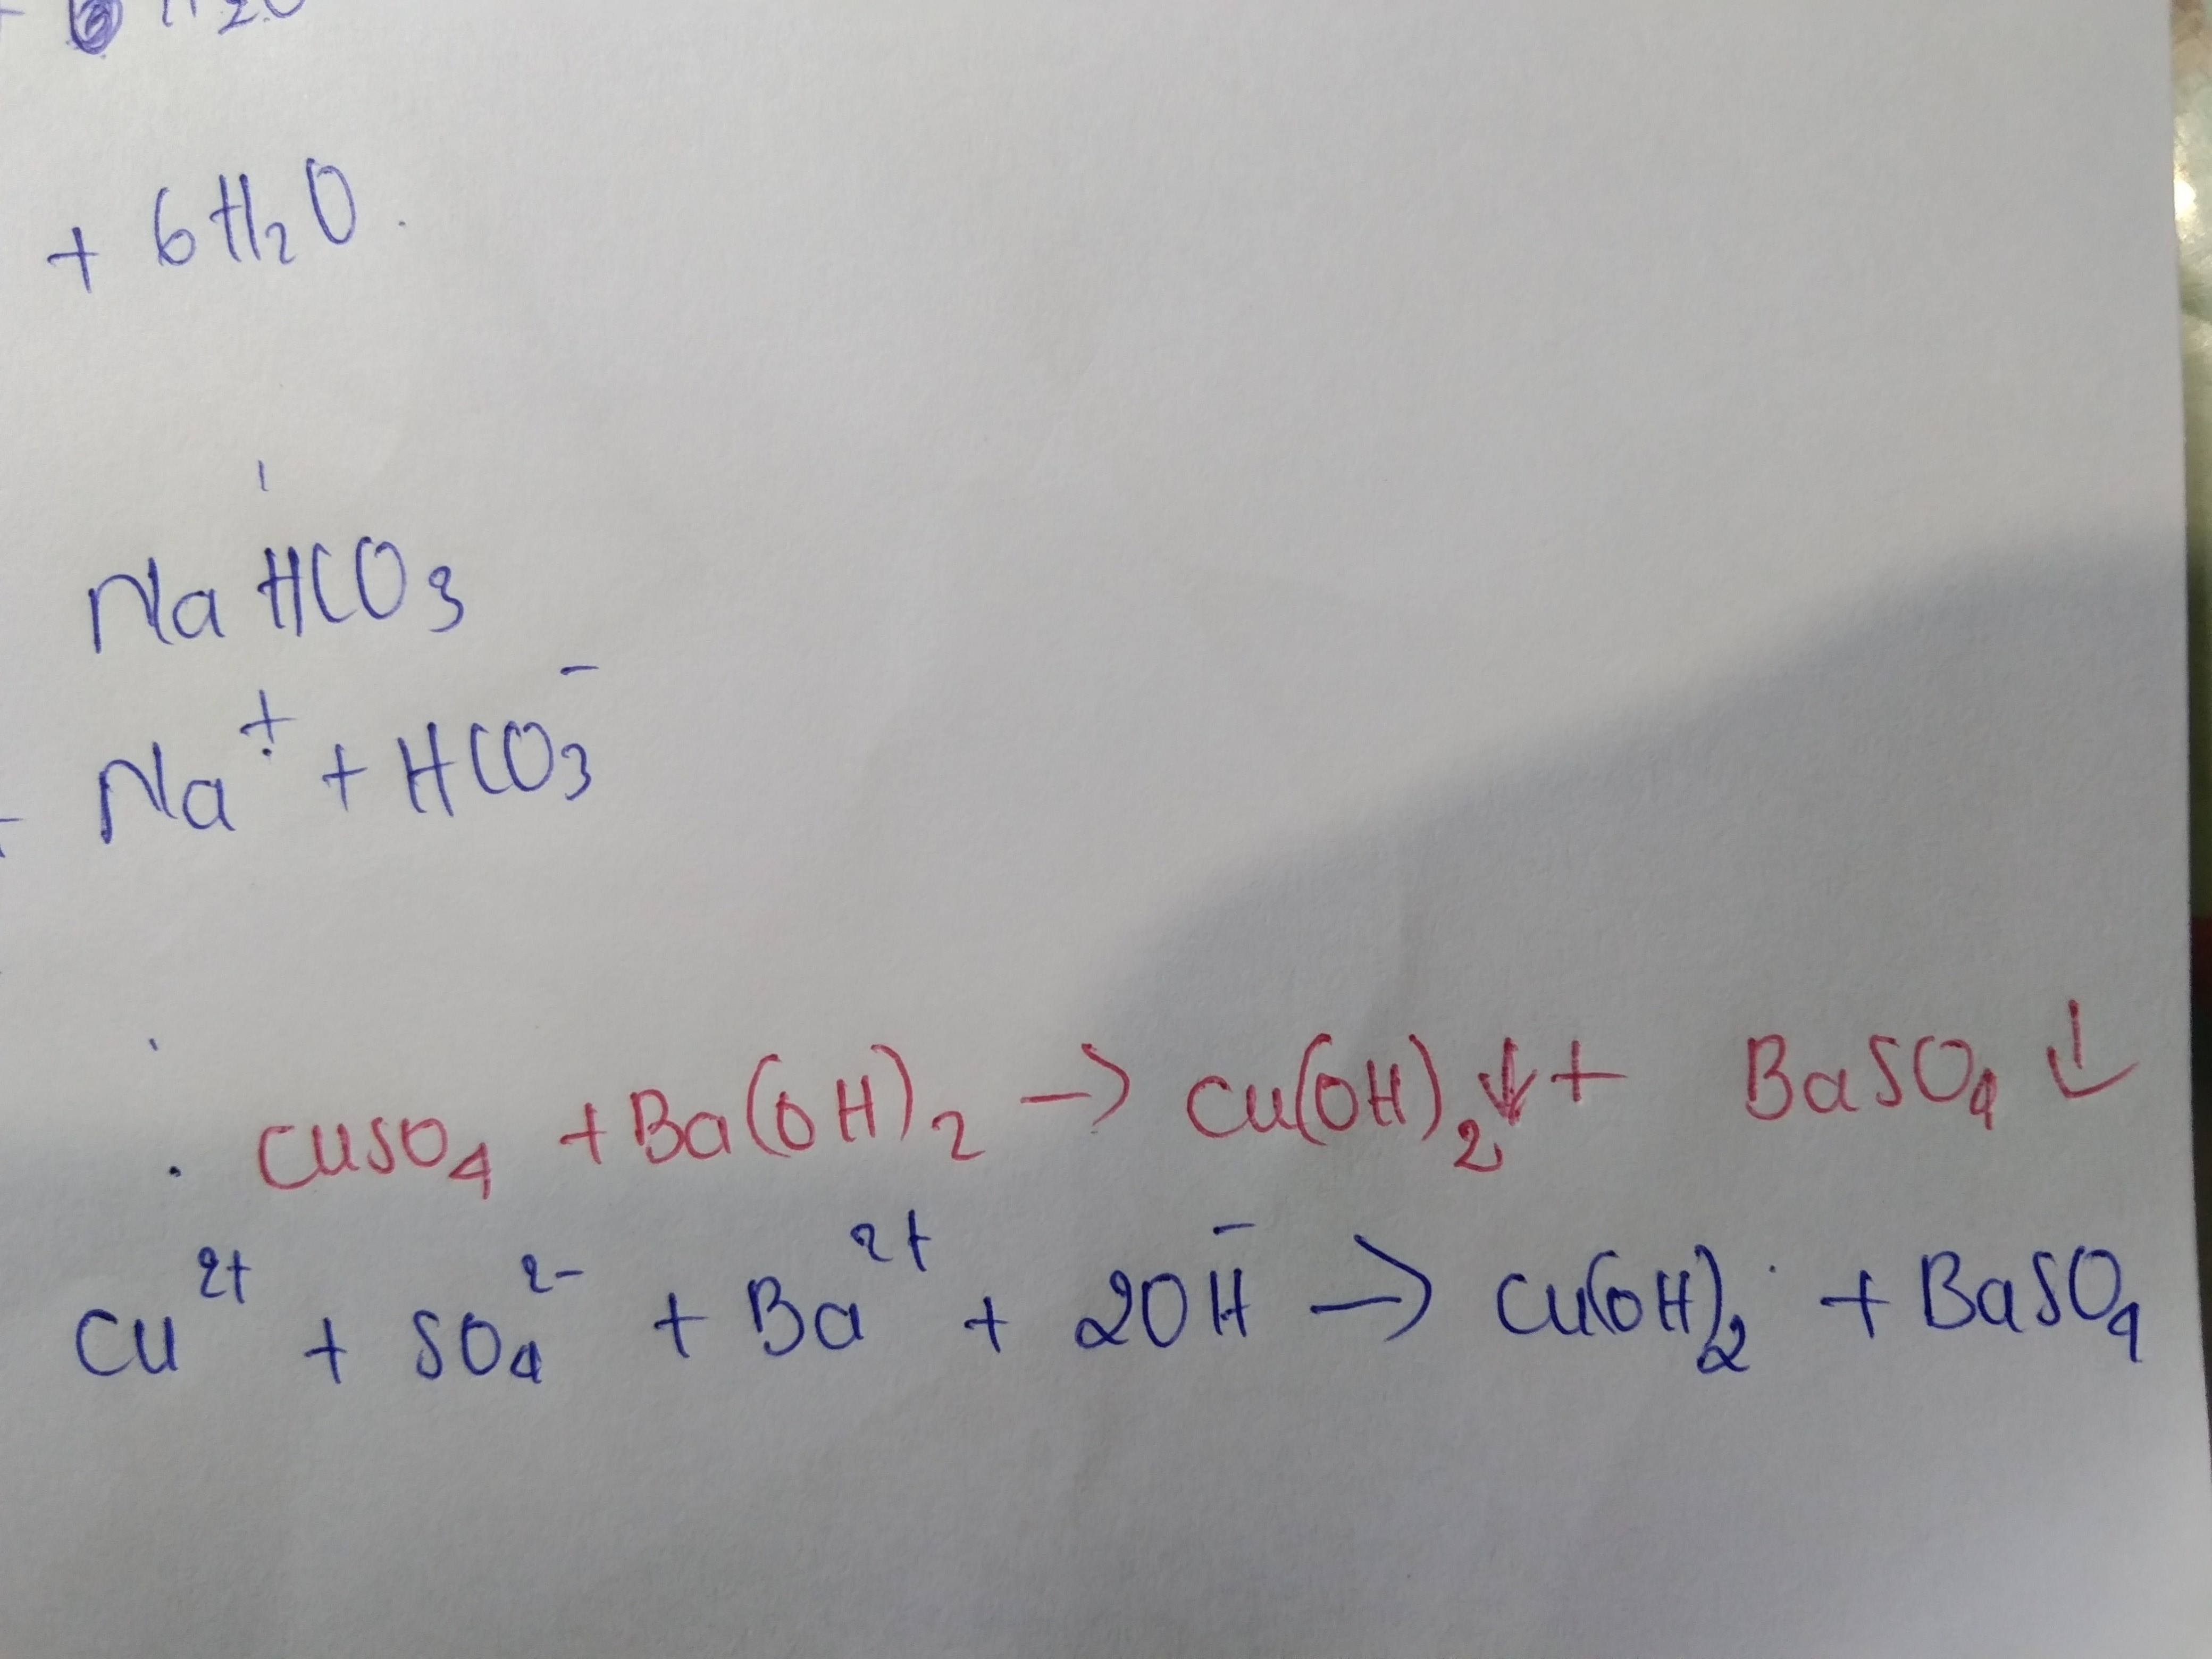 + 6H₂O.
NaHCO₃
Na⁺ + HCO₃⁻
CuSO₄ + Ba(OH)₂ → Cu(OH)₂↓ + BaSO₄↓
Cu²⁺ + SO₄²⁻ + Ba²⁺ + 2OH⁻ → Cu(OH)₂ + BaSO₄